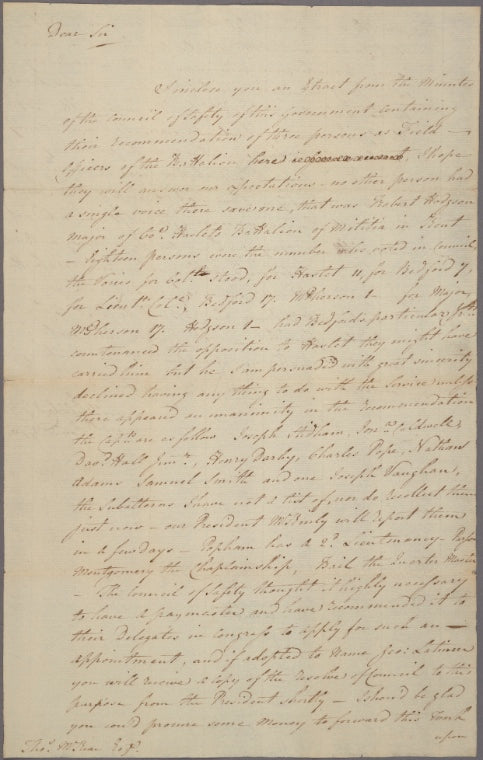 Dear Sir
I inclose you an Extract from the Minutes
of the Council of Safety of this Government containing
their recommendation of three persons as Field —
Officers of the Battalion here I hope
they will answer our expectations — no other person had
a single voice there save one, that was Robert Hodgson
Major of Coll. Haslets Battalion of Militia in Kent
— Eighteen persons were the number who voted in Council
the Voices for Coll. stood, for Haslet 11, for Bedford 7,
for Lieut. Coll. Bedford 17. McPherson 1 — for Major,
McPherson 17. Hodgson 1 — had Bedfords particular
countenanced the opposition to Haslet they might have
carried him but he I am persuaded with great sincerity
declined having any thing to do with the Service unless
there appeared an unanimity in the recommendation
the Capts. are as follow Joseph Stidham, Jona. Caldwell,
Davd. Hall Junr., Henry Darby, Charles Pope, Nathan
Adams Samuel Smith and one Joseph Vaughan,
the Subalterns I have not a list of, nor do I recollect them
just now — our President McKinly will report them
in a few days — Popham has a 2d. Lieutenancy — Parson
Montgomery the Chaplainship, the Quarter Master
— The Council of Safety thought it highly necessary
to have a paymaster and have recommended it to
their Delegates in Congress to apply for such an —
appointment, and if adopted to Name Geo: Latimer
you will receive a Copy of the resolve of Council to this
purpose from the President shortly — I shoud be glad
you coud procure some Money to forward this Work
upon
Thos. McKean Esqr.